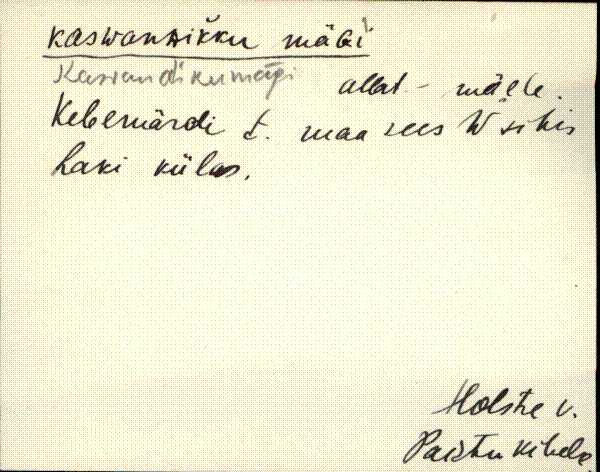 kaswandikku mägi
Kasvandikumägi
allat - mäele.
Kebemärdi t. maa sees W sihis
Laki külas.
Holstre v.
Paistu kihelk.